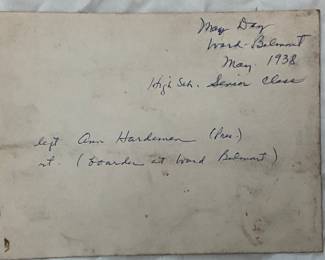 May Day
Ward-Belmont
May. 1938
High Sch. Senior Class
left Ann Hardeman (Pres.)
rt. (boarder at Ward Belmont)